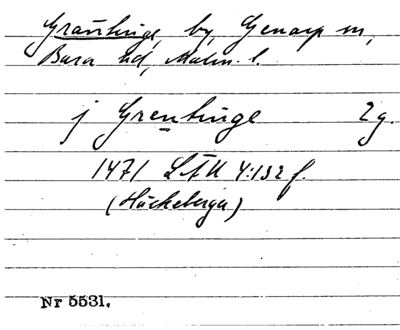 Gräntinge, by, Genarp sn,
Bara hd, Malm. l.
j Grentinge 2 g.
1471 LÄU 4:132 f.
(Häckeberga)
Nr 5531.